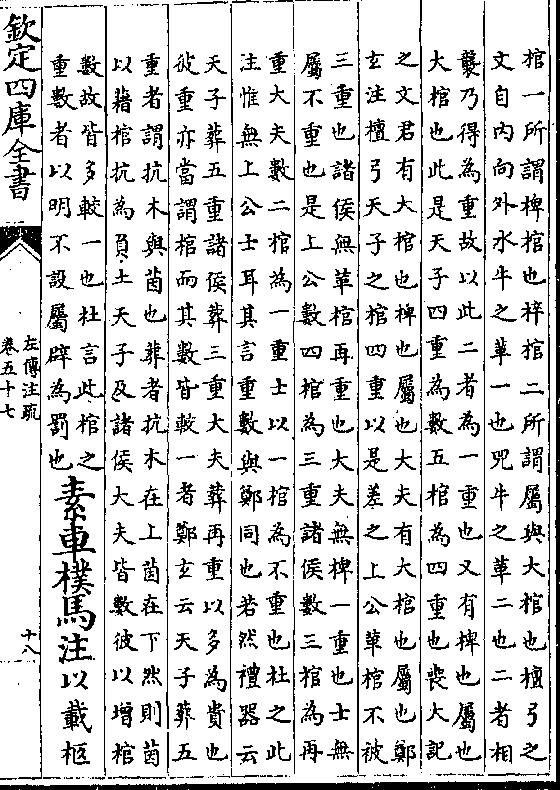 棺一所謂椑棺也梓棺二所謂屬與大棺也檀弓之
文自内向外水牛之革一也兕牛之革二也二者相
襲乃得為重故以此二者為一重也又有椑也屬也
大棺也此是天子四重為數五棺為四重也喪大記
之文君有大棺也椑也屬也大夫有大棺也屬也鄭
玄注檀弓天子之棺四重以是差之上公革棺不被
三重也諸侯無革棺再重也大夫無椑一重也士無
屬不重也是上公數四棺為三重諸侯數三棺為再
重大夫數二棺為一重士以一棺為不重也杜之此
注惟無上公士耳其言重數與鄭同也若然禮器云
天子葬五重諸侯葬三重大夫葬再重以多為貴也
彼重亦當謂棺而其數皆較一者鄭玄云天子葬五
重者謂抗木與茵也葬者抗木在上茵在下然則茵
以藉棺抗為負土天子及諸侯大夫皆數彼以增棺
數故皆多較一也杜言此棺之
重數者以明不設屬辟為罰也
素車樸馬注以載柩
欽定四庫全書
左傳注疏
卷五十七
十八